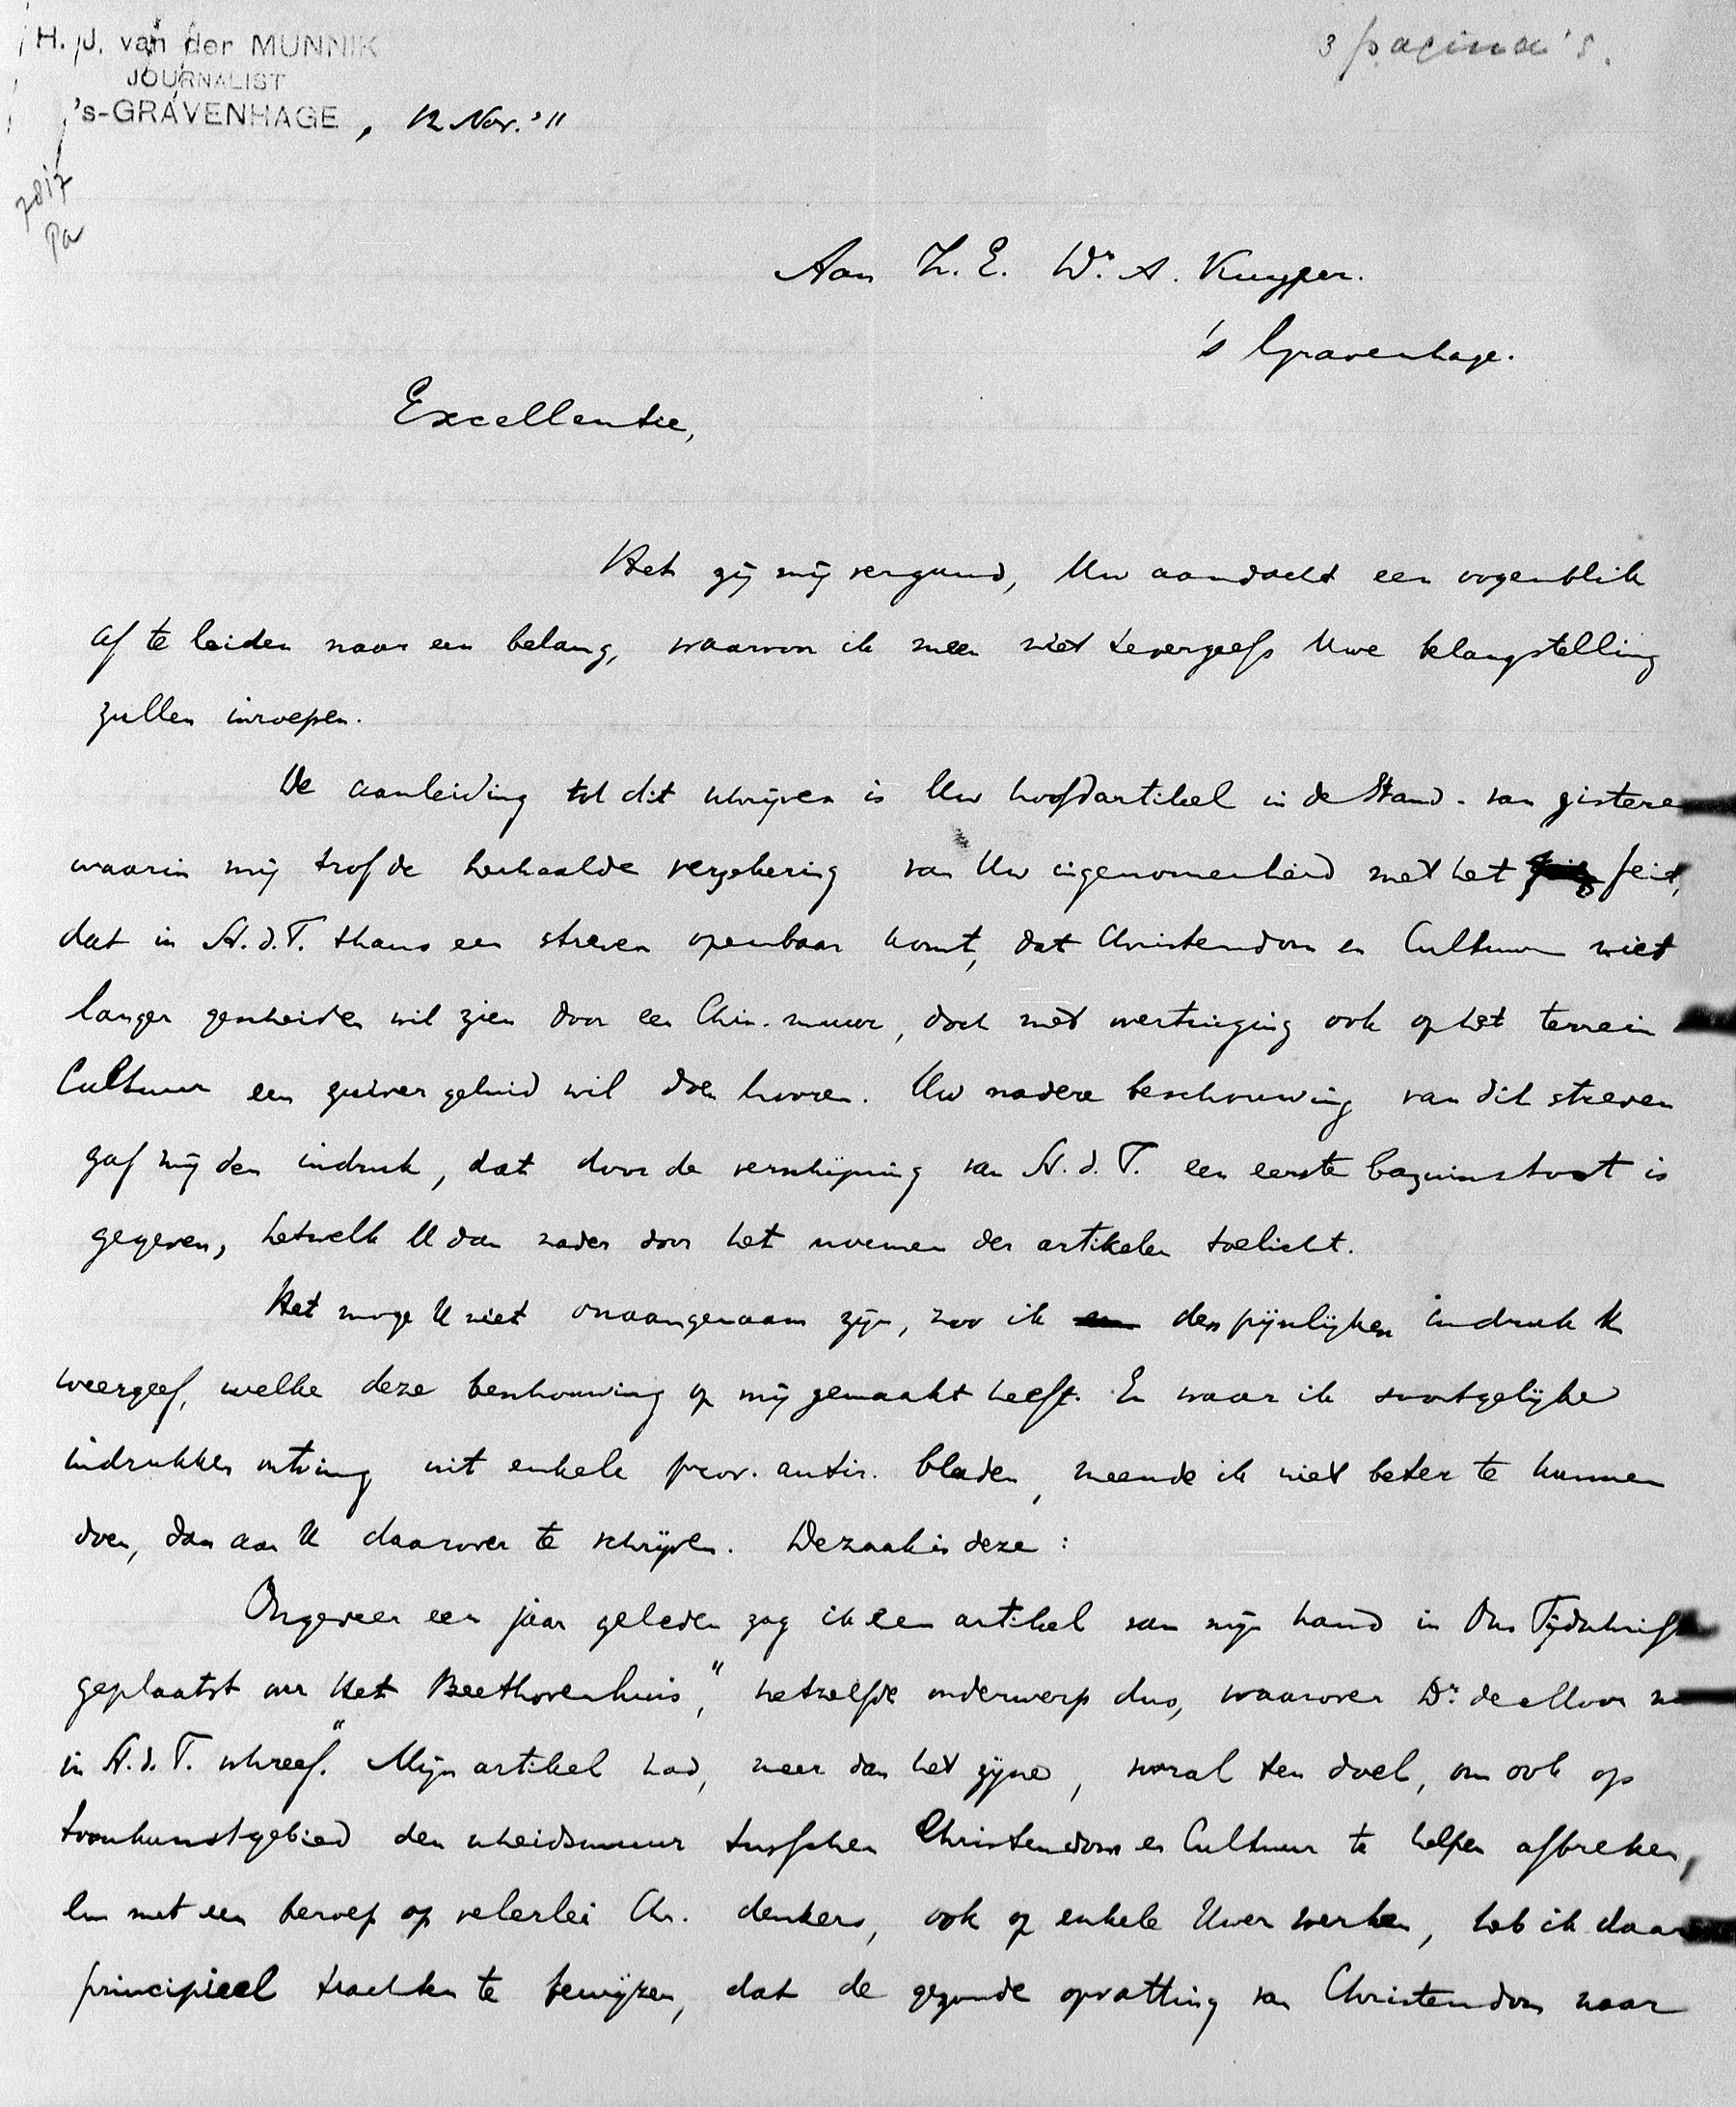 H. J. van der MUNNIK
JOURNALIST
's-GRAVENHAGE, 12 Nov. '11
3 pagina's.
7817
Pa
Aan Z. E. Dr. A. Kuyper.
's Gravenhage.
Excellentie,
Het zij mij vergund, Uw aandacht een oogenblik
af te leiden naar een belang, waarvoor ik meen niet tevergeefs Uwe belangstelling
zullen inroepen.
De aanleiding tot dit schrijven is Uw hoofdartikel in de Stand. van gisteren
waarin mij trof de herhaalde verzekering van Uw ingenomenheid met het feit,
dat in S. d. T. thans een streven openbaar komt, dat Christendom en Cultuur niet
langer gescheiden wil zien door een Chin. muur, doch met overtuiging ook op het terrein
Cultuur een zuiver geluid wil doen hooren. Uw nadere beschouwing van dit streven
gaf mij den indruk, dat door de verschijning van S. d. T. een eerste bazuinstoot is
gegeven, hetwelk U dan nader door het noemen der artikelen toelicht.
Het moge U niet onaangenaam zijn, zoo ik den pijnlijken indruk U
weergeef, welke deze beschouwing op mij gemaakt heeft. En waar ik soortgelijke
indrukken ontving uit enkele prov. antir. bladen, meende ik niet beter te kunnen
doen, dan aan U daarover te schrijven. De zaak is deze:
Ongeveer een jaar geleden zag ik een artikel van mijn hand in Ons Tijdschrift
geplaatst over "Het Beethovenhuis," hetzelfde onderwerp dus, waarover Dr. de Moor nu
in S. d. T. schreef. Mijn artikel had, meer dan het zijne, vooral ten doel, om ook op
toonkunstgebied den scheidsmuur tusschen Christendom en Cultuur te helpen afbreken,
en met een beroep op velerlei Chr. denkers, ook op enkele Uwer werken, heb ik daar
principieel trachten te bewijzen, dat de gezonde opvatting van Christendom naar